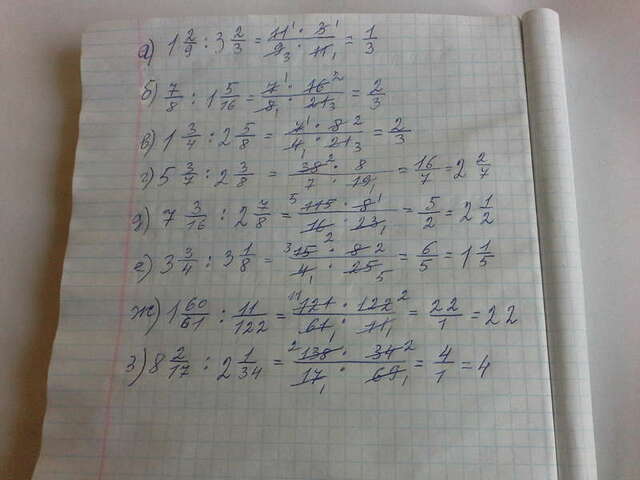 а) 1 2/9 : 3 2/3 = 11¹ · 3¹ / 9₃ · 11₁ = 1/3
б) 7/8 : 1 5/16 = 7¹ · 16² / 8₁ · 21₃ = 2/3
в) 1 3/4 : 2 5/8 = 7¹ · 8² / 4₁ · 21₃ = 2/3
г) 5 3/7 : 2 3/8 = 38² · 8 / 7 · 19₁ = 16/7 = 2 2/7
д) 7 3/16 : 2 7/8 = ⁵115 · 8¹ / 16₂ · 23₁ = 5/2 = 2 1/2
е) 3 3/4 : 3 1/8 = ³15 · 8² / 4₁ · 25₅ = 6/5 = 1 1/5
ж) 1 60/61 : 11/122 = ¹¹121 · 122² / 61₁ · 11₁ = 22/1 = 22
з) 8 2/17 : 2 1/34 = ²138 · 34² / 17₁ · 69₁ = 4/1 = 4